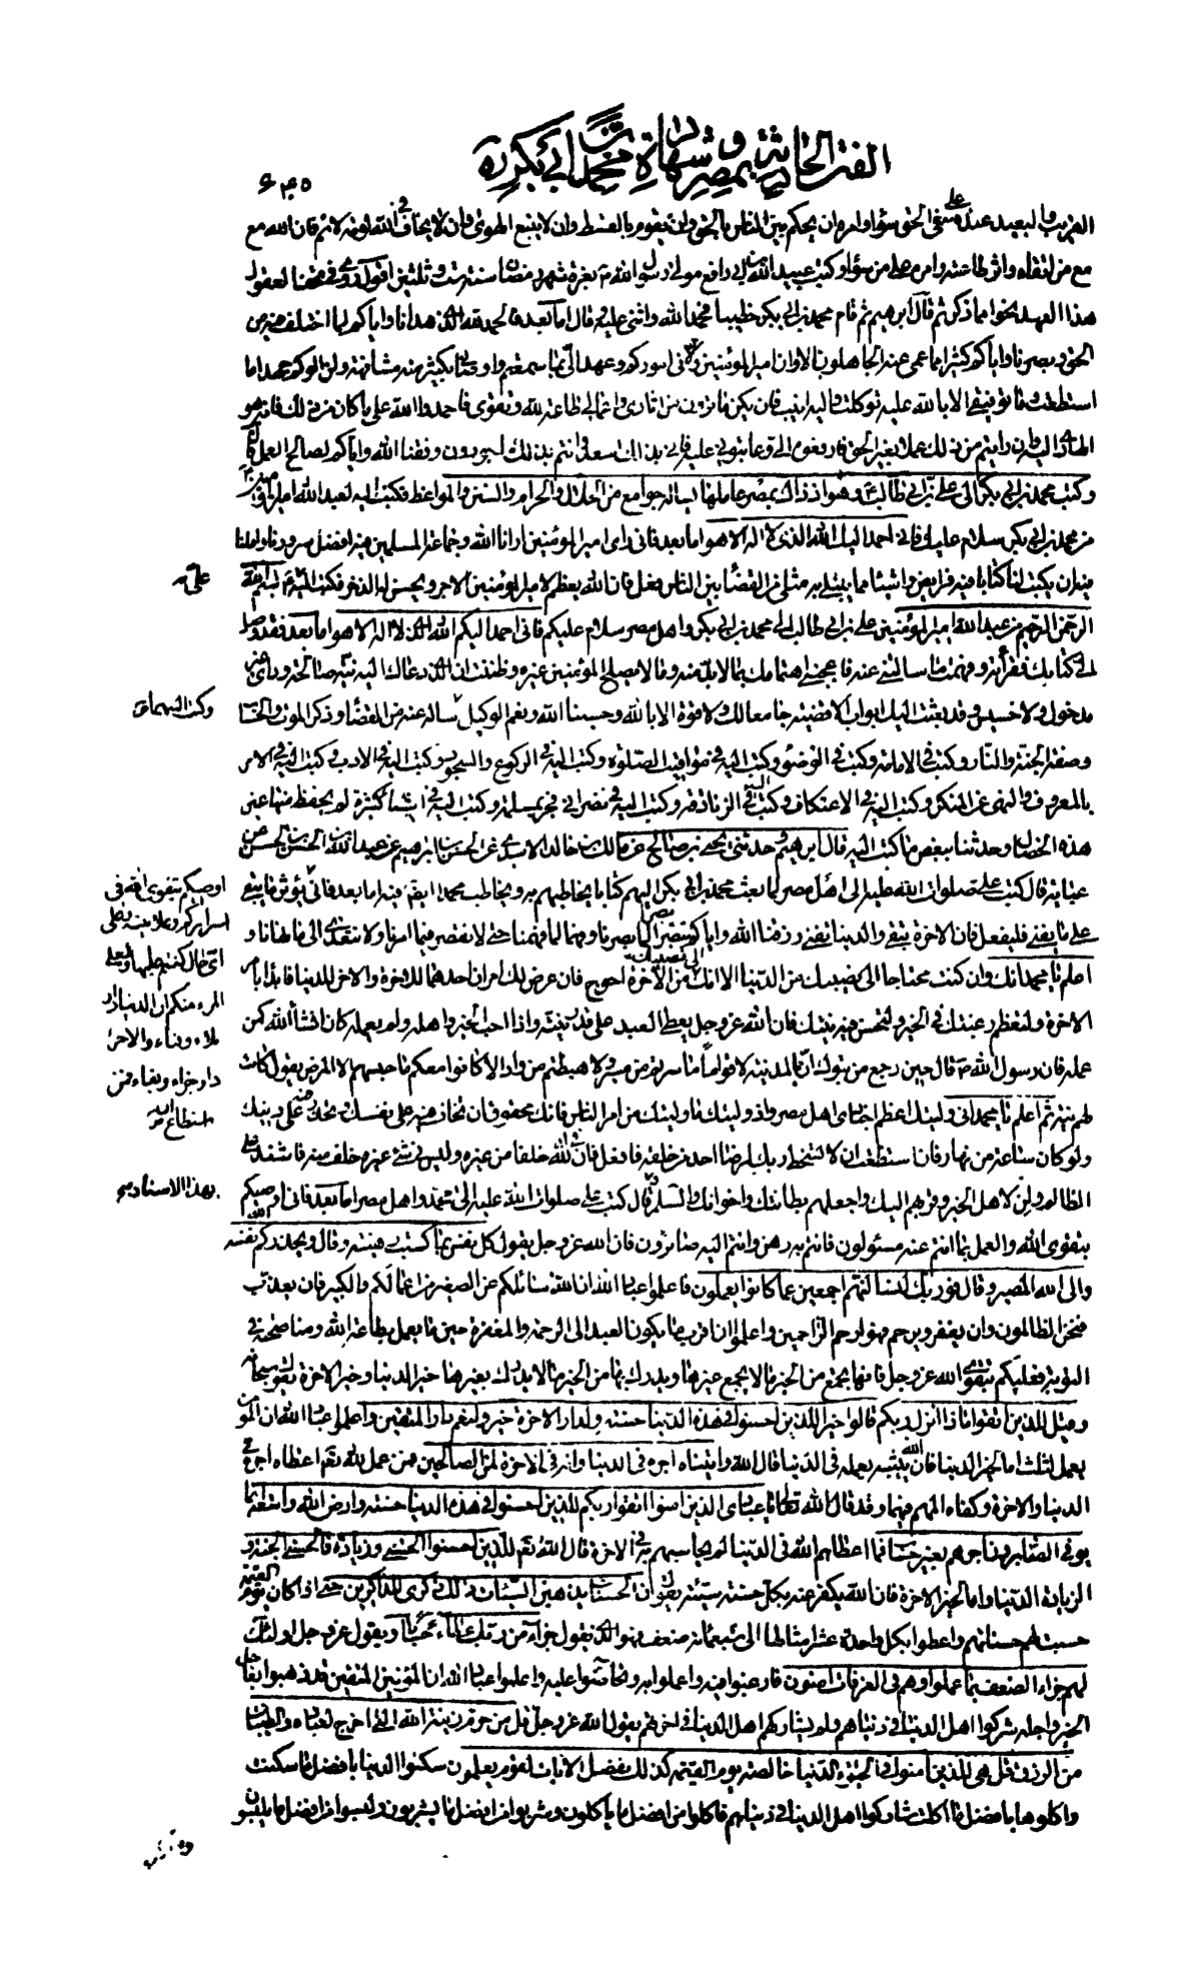 الفتن الحادثة بمصر وشهادة محمد بن أبي بكر ره
٦٤٥
القريب والبعيد عنده على في الحق سواء وامره ان يحكم بين الناس بالحق وان يقوم بالقسط وان لا يتبع الهوى وان لا يخاف في الله لومة لائم فان الله مع
مع من اتقاه واثر طاعته وامره على من سواه وكتب عبيد الله بن ابي رافع مولى رسول الله ص بغرة شهر رمضان سنة ست وثلثين اقول
هذا العهد نحوا مما ذكر ثم قال ابرهيم ثم قام محمد بن ابي بكر خطيبا فحمد الله واثنى عليه وقال اما بعد فالحمد لله الذي هدانا واياكم لما اختلف فيه من
الحق وبصرنا واياكم كثيرا مما عمى عنه الجاهلون الا وان امير المؤمنين ولاني اموركم وعهد الي بما سمعتم واوصاني بكثير منه مشافهة ولن الوكم جهدا ما
استطعت وما توفيقي الا بالله عليه توكلت واليه انيب فان يكن ما ترون من اثاري واعمالي طاعة لله وتقوى فاحمدوا الله على ما كان من ذلك فانه هو
الهادي اليه وان رايتم من ذلك عملا بغير الحق فارفعوه الي وعاتبوني عليه فاني بذلك اسعد وانتم بذلك جديرون وفقنا الله واياكم لصالح العمل قال
وكتب محمد بن ابي بكر الى علي بن ابي طالب ع وهو اذ ذاك بمصر عاملها يساله جوامع من الحلال والحرام والسنن والمواعظ فكتب اليه لعبد الله امير المؤمنين
من محمد بن ابي بكر سلام عليك فاني احمد اليك الله الذي لا اله الا هو اما بعد فان راى امير المؤمنين ارانا الله وجماعة المسلمين فيه افضل سرورنا واملنا
فيه ان يكتب لنا كتابا فيه فرايض واشياء مما يبتلى به مثلي من القضاء بين الناس فعل فان الله يعظم لامير المؤمنين الاجر ويحسن له الذخر فكتب اليه بسم الله
علي ع
الرحمن الرحيم من عبد الله امير المؤمنين علي بن ابي طالب الى محمد بن ابي بكر واهل مصر سلام عليكم فاني احمد اليكم الله الذي لا اله الا هو اما بعد فقد وصل
الي كتابك فقراته وفهمت ما سالتني عنه فاعجبني اهتمامك بما لا بد منه وما لا يصلح المؤمنين غيره وظننت ان الذي دعاك اليه نية صالحة وراي غير
مدخول ولا خسيس وقد بعثت اليك ابواب الاقضية جامعا لك ولا قوة الا بالله وحسبنا الله ونعم الوكيل ساله عنه من القضاء وذكر الموت والحساب
وكتب اليه بما
وصفة الجنة والنار وكتب في الامامة وكتب في الوضوء وكتب اليه في مواقيت الصلوة وكتب اليه في الركوع والسجود وكتب اليه في الادب وكتب اليه في الامر
بالمعروف والنهي عن المنكر وكتب اليه في الاعتكاف وكتب اليه في الزنادقة وكتب اليه في نصراني فجر بمسلمة وكتب اليه في اشياء كثيرة لم يحفظ منها غير
هذه الخصال وحدثنا ببعض ما كتب اليه قال ابرهيم وحدثني يحيى بن صالح عن مالك بن خالد الاسدي عن الحسن بن ابرهيم عن عبد الله بن الحسن بن الحسن عن
عباية قال كتب علي صلوات الله عليه الى اهل مصر لما بعث محمد بن ابي بكر اليهم كتابا يخاطبهم به ويخاطب محمدا ايضا فيه اما بعد فاني
اوصيكم بتقوى الله في
اسراركم وعلانيتكم وعلى
اي حال كنتم عليها وليعلم
المرء منكم ان الدنيا دار
بلاء وفناء والاخرة
دار جزاء وبقاء فمن
استطاع ان
يؤثر ما يبقى
على ما يفنى فليفعل فان الاخرة تبقى والدنيا تفنى رزقنا الله واياكم بصرا لما بصرنا وفهما لما فهمنا حتى لا نقصر فيما امرنا ولا نتعدى الى ما نهانا و
اعلم يا محمد انك وان كنت محتاجا الى نصيبك من الدنيا الا انك الى نصيبك من الاخرة احوج فان عرض لك امران احدهما للاخرة والاخر للدنيا فابدا بامر
الاخرة ولتعظم رغبتك في الخير ولتحسن فيه نيتك فان الله عز وجل يعطي العبد على قدر نيته واذا احب الخير واهله ولم يعمله كان انشاء الله كمن
عمله فان رسول الله ص قال حين رجع من تبوك ان بالمدينة لاقواما ما سرتم من مسير ولا هبطتم من واد الا كانوا معكم ما حبسهم الا المرض يقول كانت
لهم نية ثم اعلم يا محمد اني وليتك اعظم اجنادي اهل مصر واذ وليتك ما وليتك من امر الناس فانك محقوق ان تخاف فيه على نفسك وتحذر فيه على دينك
ولو كان ساعة من نهار فان استطعت ان لا تسخط ربك لرضا احد من خلقه فافعل فان في الله خلفا من غيره وليس في شيء غيره خلف منه فاشتد على
الظالم ولن لاهل الخير وقربهم اليك واجعلهم بطانتك واخوانك والسلم قال كتب علي صلوات الله عليه الى محمد واهل مصر اما بعد فاني اوصيكم
بهذا الاسناد
بتقوى الله والعمل بما انتم عنه مسئولون فانتم به رهن وانتم اليه صائرون فان الله عز وجل يقول كل نفس بما كسبت رهينة وقال ويحذركم الله نفسه
والى الله المصير وقال فوربك لنسالنهم اجمعين عما كانوا يعملون فاعلموا عباد الله ان الله سائلكم عن الصغير من اعمالكم والكبير فان يعذب
فنحن الظالمون وان يغفر ويرحم فهو ارحم الراحمين واعلموا ان اقرب ما يكون العبد الى الرحمة والمغفرة حين ما يعمل بطاعة الله ومناصحته في
التوبة فعليكم بتقوى الله عز وجل فانها تجمع من الخير ما لا يجمع غيرها ويدرك بها من الخير ما لا يدرك بغيرها خير الدنيا وخير الاخرة يقول سبحانه
وقيل للذين اتقوا ماذا انزل ربكم قالوا خيرا للذين احسنوا في هذه الدنيا حسنة ولدار الاخرة خير ولنعم دار المتقين واعلموا عباد الله ان المؤمن
يعمل لثلث اما لخير الدنيا فان الله يثيبه بعمله في الدنيا قال الله واتيناه اجره في الدنيا وانه في الاخرة لمن الصالحين فمن عمل لله تعم اعطاه اجره في
الدنيا والاخرة وكفاه المهم فيهما وقد قال الله تعالى يا عبادي الذين امنوا اتقوا ربكم للذين احسنوا في هذه الدنيا حسنة وارض الله واسعة انما
يوفى الصابرون اجرهم بغير حساب فما اعطاهم الله في الدنيا لم يحاسبهم به في الاخرة قال الله تعم للذين احسنوا الحسنى وزيادة فالحسنى الجنة و
الزيادة الدنيا واما لخير الاخرة فان الله يكفر عنه بكل حسنة سيئة يقول ان الحسنات يذهبن السيئات ذلك ذكرى للذاكرين حتى اذا كان يوم القيمة
حسبت لهم حسناتهم واعطوا بكل واحدة عشر امثالها الى سبعمائة ضعف فهو الذي يقول جزاء من ربك عطاء حسابا ويقول عز وجل اولئك
لهم جزاء الضعف بما عملوا وهم في الغرفات امنون فارغبوا فيه واعملوا به وتحاضوا عليه واعلموا عباد الله ان المؤمنين المتقين قد ذهبوا بعاجل
الخير واجله شركوا اهل الدنيا في دنياهم ولم يشاركهم اهل الدنيا في اخرتهم يقول الله عز وجل قل من حرم زينة الله التي اخرج لعباده والطيبات
من الرزق قل هي للذين امنوا في الحيوة الدنيا خالصة يوم القيمة كذلك نفصل الايات لقوم يعلمون سكنوا الدنيا بافضل ما سكنت
واكلوها بافضل ما اكلت شاركوا اهل الدنيا في دنياهم فاكلوا من افضل ما ياكلون وشربوا من افضل ما يشربون ولبسوا من افضل ما يلبسون